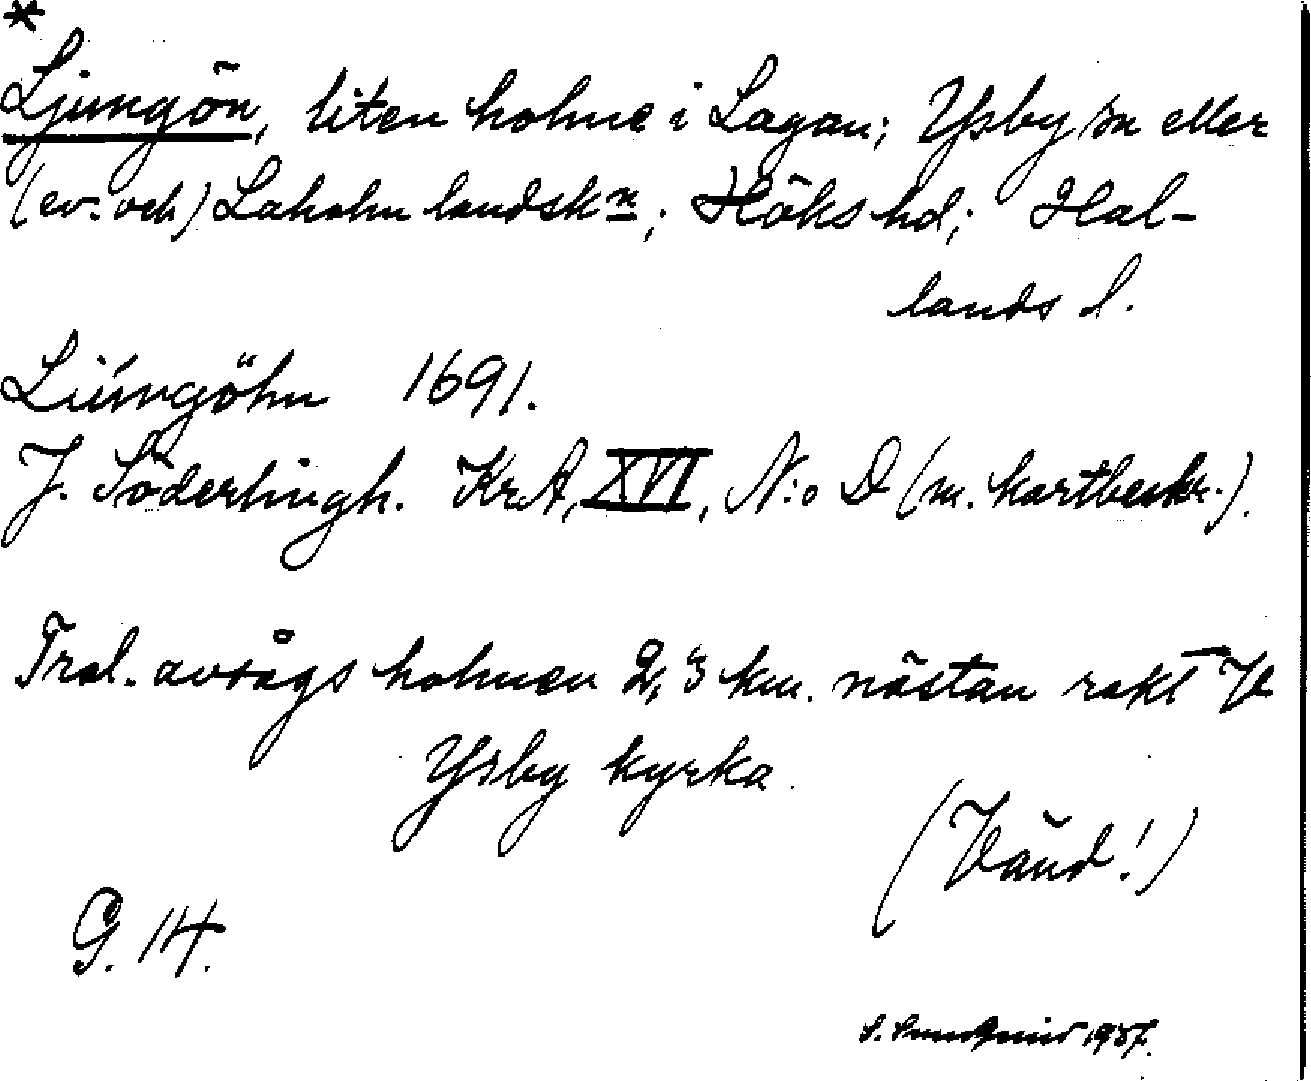 *
Ljungön, liten holme i Lagan; Ysby sn eller
(ev. och) Laholm landskn; Höks hd; Hal-
lands l.
Liúngöhn 1691.
J. Söderlingh. KrA, XVI, N:o D (m. kartbeskr.).
Trol. avsågs holmen 2,3 km. nästan rakt V
Ysby kyrka.
(Vänd!)
G. 14.
1937.